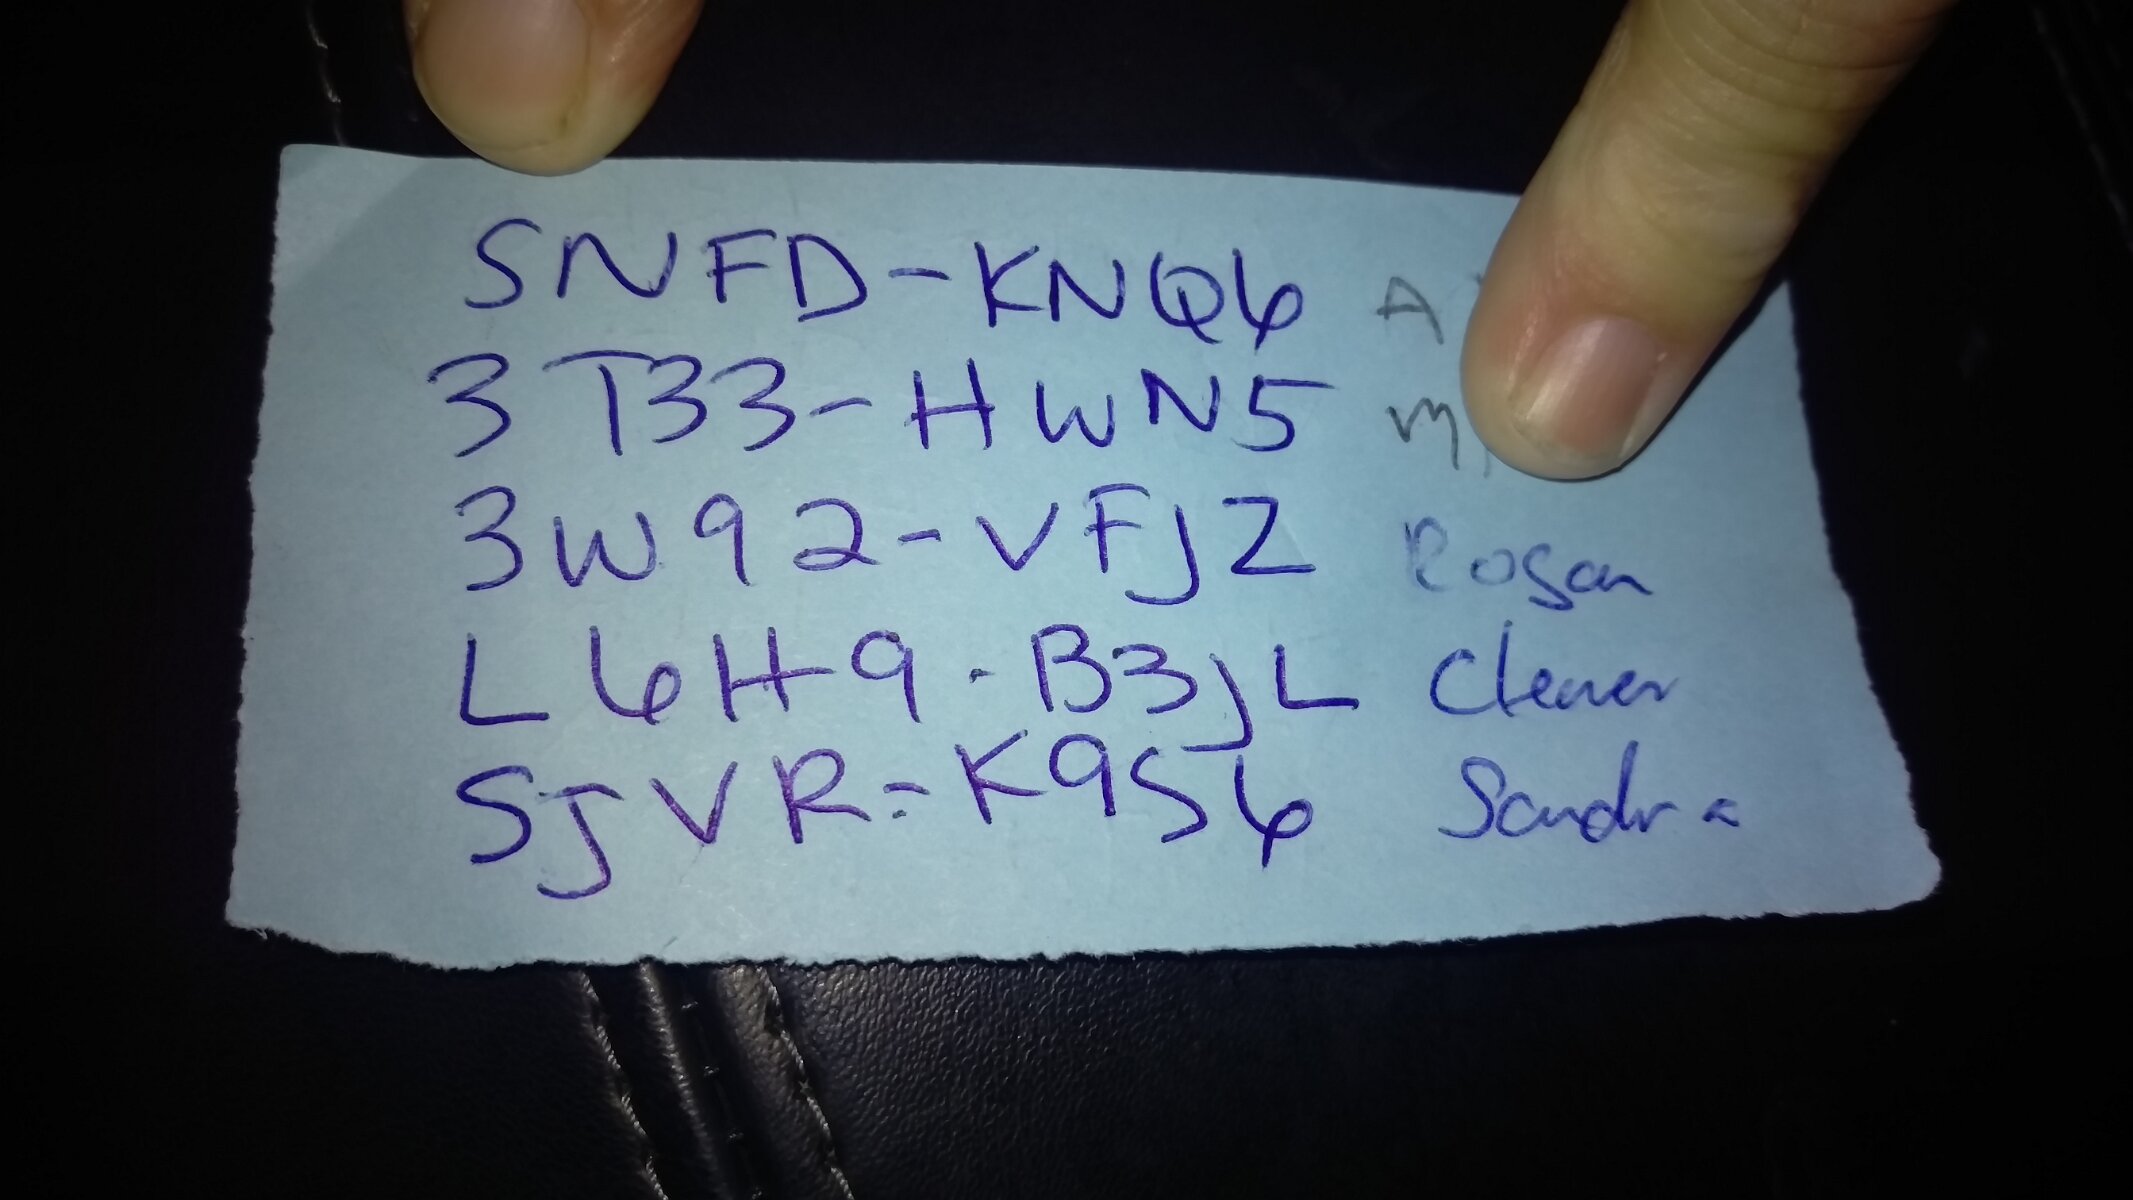 SNFD-KNQ6 A
3T33-HWN5 M
3W92-VFJZ Rogan
L6H9-B3JL Clever
SJVR-K9S6 Sandra